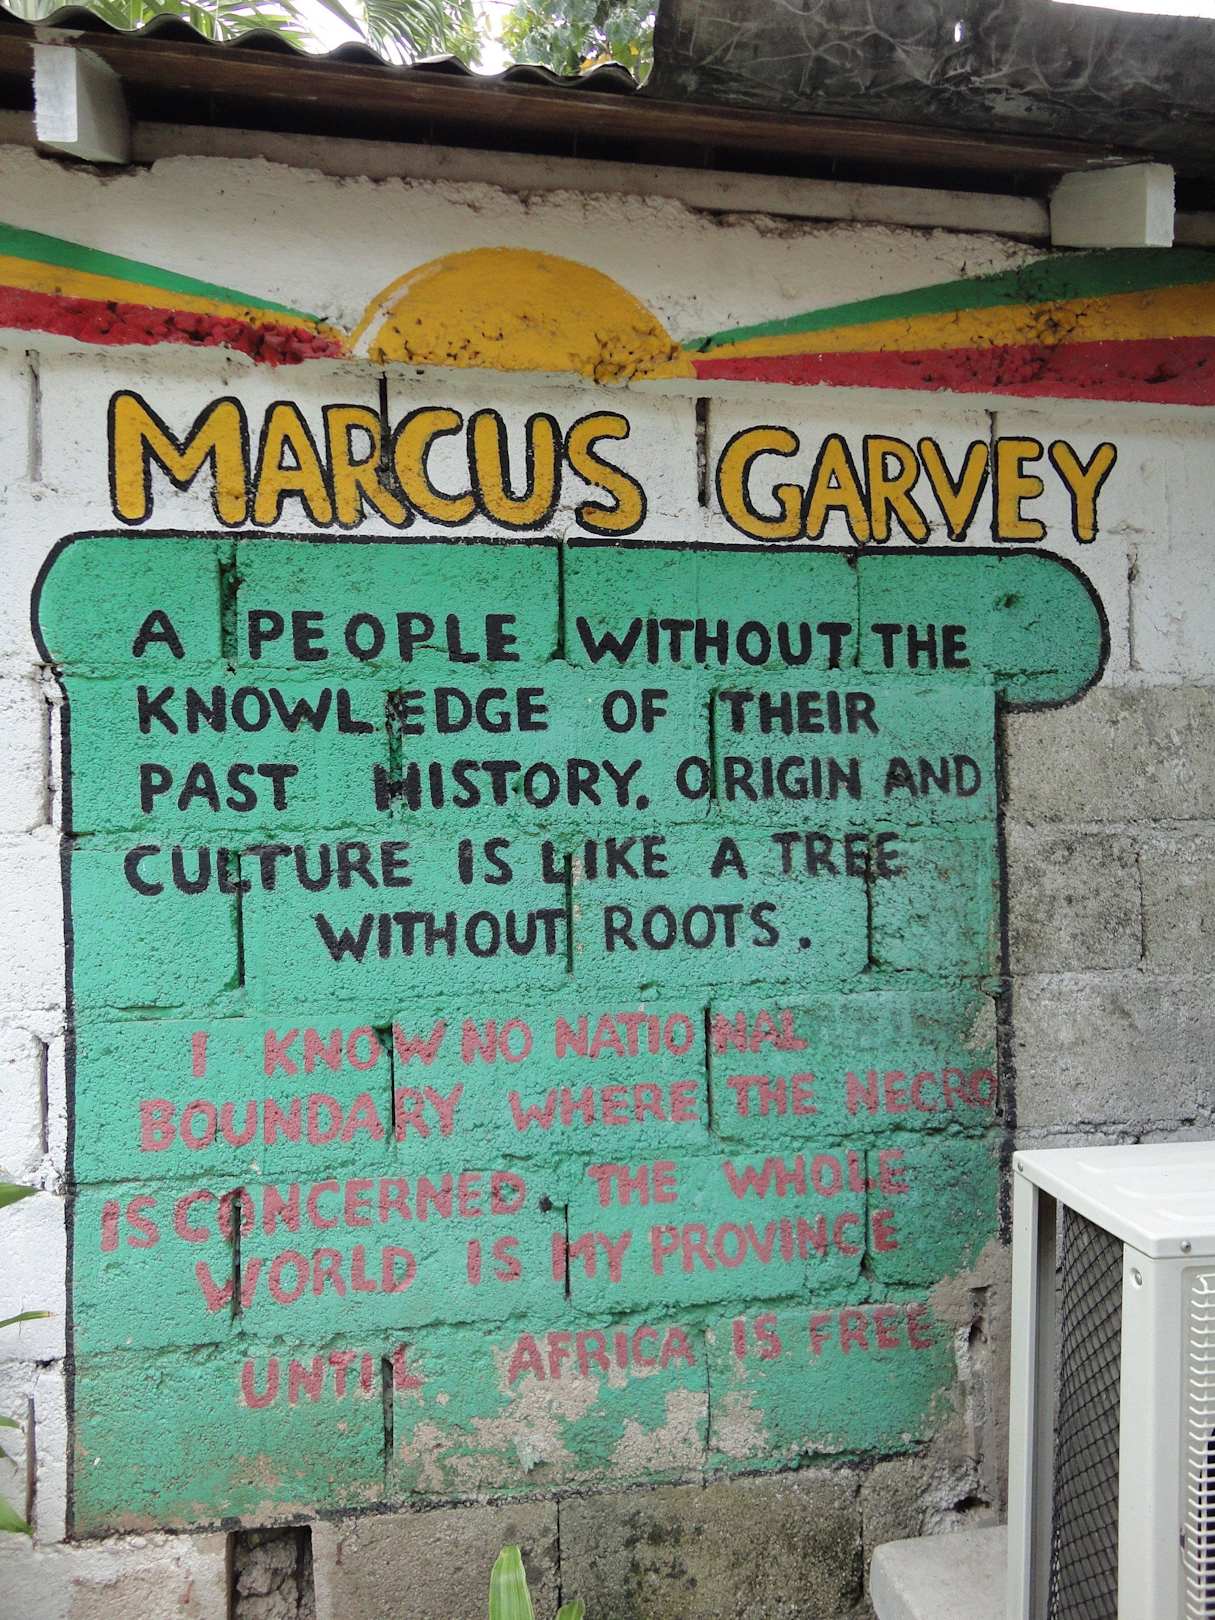 MARCUS GARVEY
A PEOPLE WITHOUT THE
KNOWLEDGE OF THEIR
PAST HISTORY. ORIGIN AND
CULTURE IS LIKE A TREE
WITHOUT ROOTS.
I KNOW NO NATIONAL
BOUNDARY WHERE THE NEGRO
IS CONCERNED. THE WHOLE
WORLD IS MY PROVINCE
UNTIL AFRICA IS FREE